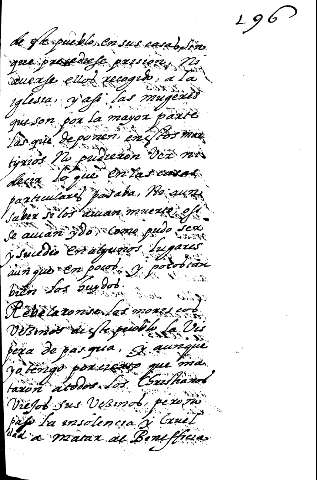 196
de este pueblo, en sus casas, sin
que precediese prission, No
averse ellos recogido, a la
iglesia, y asi las mugeres
que son por la mayor parte
las que deponen en estos mar
tyrios No pudieron ver ni
decir lo que en las casas
particulares pasaba, No aun
saber si los avian muerto, o si
se avian ydo, como pudo ser
y sucedio en algunos lugares
aunque en pocos, y
bien los
Rebelaronse los moriscos
Vezinos de este pueblo la Vis
pera de pasqua, y aunque
yo tengo por cierto que ma
taron a todos los Cristianos
Viejos sus Vezinos, pero no
paso la insolencia y cruel
dad a matar al Beneficia